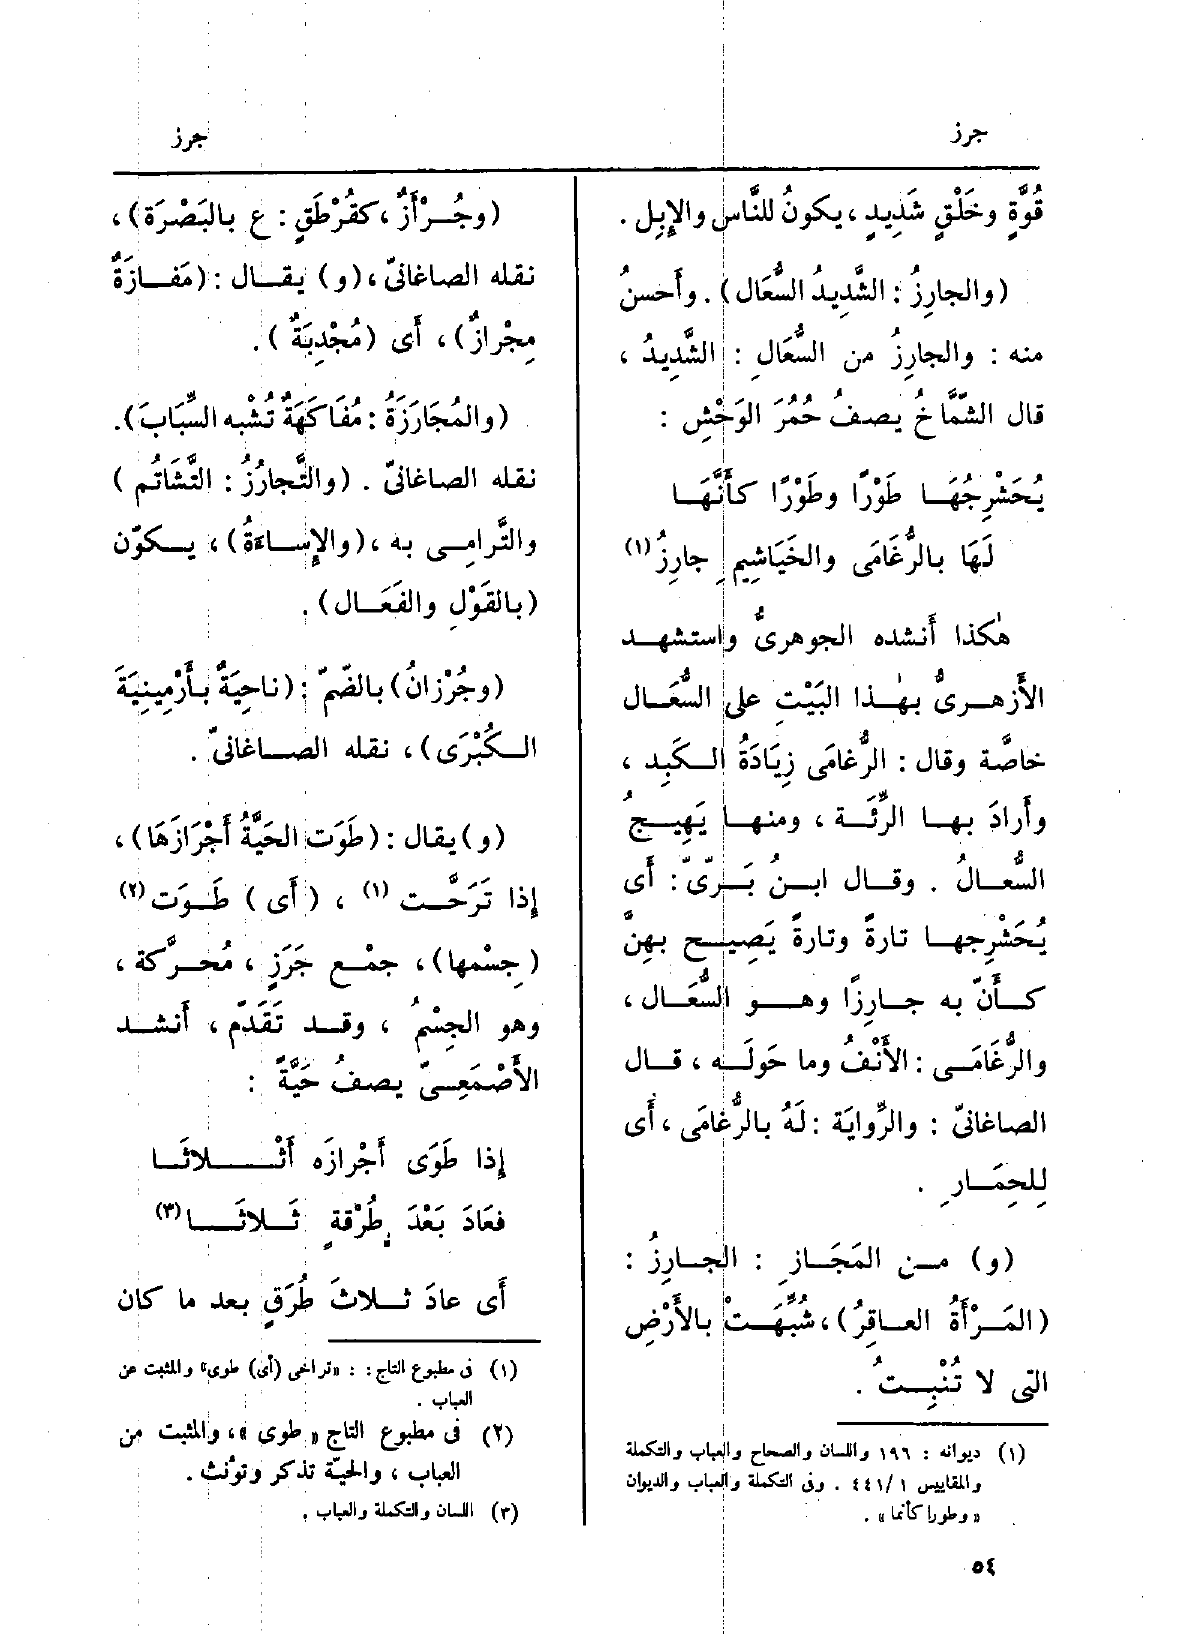 جرز
جرز
قُوَّةٍ وخَلْقٍ شَدِيدٍ ، يكونُ للنَّاس والإِبِل .
(والجارِزُ : الشَّدِيدُ السُّعَال) . وأَحسنُ
منه : والجارِزُ من السُّعَالِ : الشَّدِيدُ ،
قال الشَّمّاخُ يصفُ حُمُرَ الوَحْشِ :
يُحَشْرِجُهَا طَوْرًا وطَوْرًا كأَنَّهَا
لَهَا بالرُّغَامَى والخَيَاشِيمِ جارِزُ (١)
هٰكذا أَنشده الجوهرىُّ واستشهد
الأَزهرىُّ بهٰذا البَيْتِ على السُّعَال
خاصَّة وقال : الرُّغامَى زِيَادَةُ الكَبِد ،
وأَرادَ بها الرِّئَة ، ومنها يَهِيجُ
السُّعالُ . وقال ابنُ بَرِّىّ : أَى
يُحَشْرِجها تارةً وتارةً يَصِيح بهِنَّ
كأَنّ به جارِزًا وهو السُّعَال ،
والرُّغَامَى : الأَنْفُ وما حَوْلَه ، قال
الصاغانىّ : والرِّواية : لَهُ بالرُّغامَى ، أَى
لِلحِمَارِ .
(و) من المَجَازِ : الجارِزُ :
(المَرْأَةُ العاقِرُ) ، شُبِّهَتْ بالأَرْضِ
التى لا تُنْبِتُ .
(١) ديوانه : ١٩٦ واللسان والصحاح والعباب والتكملة
والمقاييس ٤٤١/١ . وفى التكملة والعباب والديوان
« وطورا كأنما » .
(وجُرْأَزٌ ، كقُرْطَقٍ : ع بالبَصْرَة) ،
نقله الصاغانىّ ، (و) يقال : (مَفازَةٌ
مِجْرازٌ) ، أَى (مُجْدِبَةٌ ) .
(والمُجَارَزَةُ : مُفَاكَهَةٌ تُشْبِه السِّبَابَ) .
نقله الصاغانىّ . (والتَّجارُزُ : التَّشَاتُم )
والتَّرامِى به ، (والإِساءَةُ) ، يكوّن
(بالقَوْلِ والفَعَال) .
(وجُرْزانُ) بالضّمّ : (ناحِيَةٌ بأَرْمِينِيَةَ
الكُبْرَى) ، نقله الصاغانىّ .
(و) يقال : (طَوَت الحَيَّةُ أَجْرَازَهَا) ،
إِذا تَرَحَّت (١) ، (أَى) طَوَت (٢)
(جِسْمها) ، جمْع جَرَزٍ ، مُحرَّكة ،
وهو الجِسْمُ ، وقد تَقَدّم ، أَنشد
الأَصْمَعِىّ يصفُ حَيَّةً :
إِذا طَوَى أَجْرازَه أَثْلاثَا
فعَادَ بَعْدَ طُرْقةٍ ثَلاثَا (٣)
أَى عادَ ثلاثَ طُرَقٍ بعد ما كان
(١) فى مطبوع التاج : : «تراخى (أى) طوى» والمثبت عن
العباب .
(٢) فى مطبوع التاج « طوى » ، والمثبت من
العباب ، والحيّة تذكر وتؤنث .
(٣) اللسان والتكملة والعباب .
٥٤